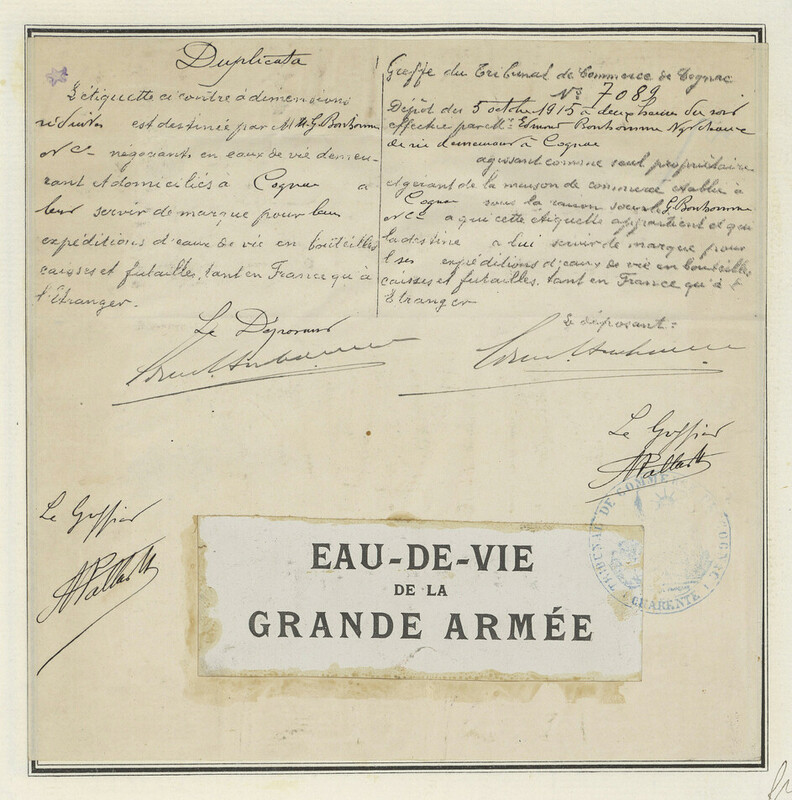 Duplicata
L'étiquette ci contre à dimensions
réduites est destinée par MM. G. Bonhomme
& Cie négociants en eaux de vie demeu-
rant et domiciliés à Cognac à
leur servir de marque pour leurs
expéditions d'eaux de vie en bouteilles
caisses et futailles, tant en France qu'à
l'étranger.
Le Déposant
Greffe du Tribunal de Commerce de Cognac
No 7089
Dépôt du 5 octobre 1915 à deux heures du soir
effectué par Mr Edmond Bonhomme Ngt eaux
de vie demeurant à Cognac
agissant comme seul propriétaire
et gérant de la maison de commerce établie à
Cognac sous la raison sociale G. Bonhomme
& Cie à qui cette étiquette appartient et qui
la destine à lui servir de marque pour
ses expéditions d'eaux de vie en bouteilles
caisses et futailles, tant en France qu'à l'
Etranger
Le déposant:
Le Greffier
Le Greffier
EAU-DE-VIE
DE LA
GRANDE ARMÉE
TRIBUNAL DE COMMERCE DE COGNAC
CHARENTE